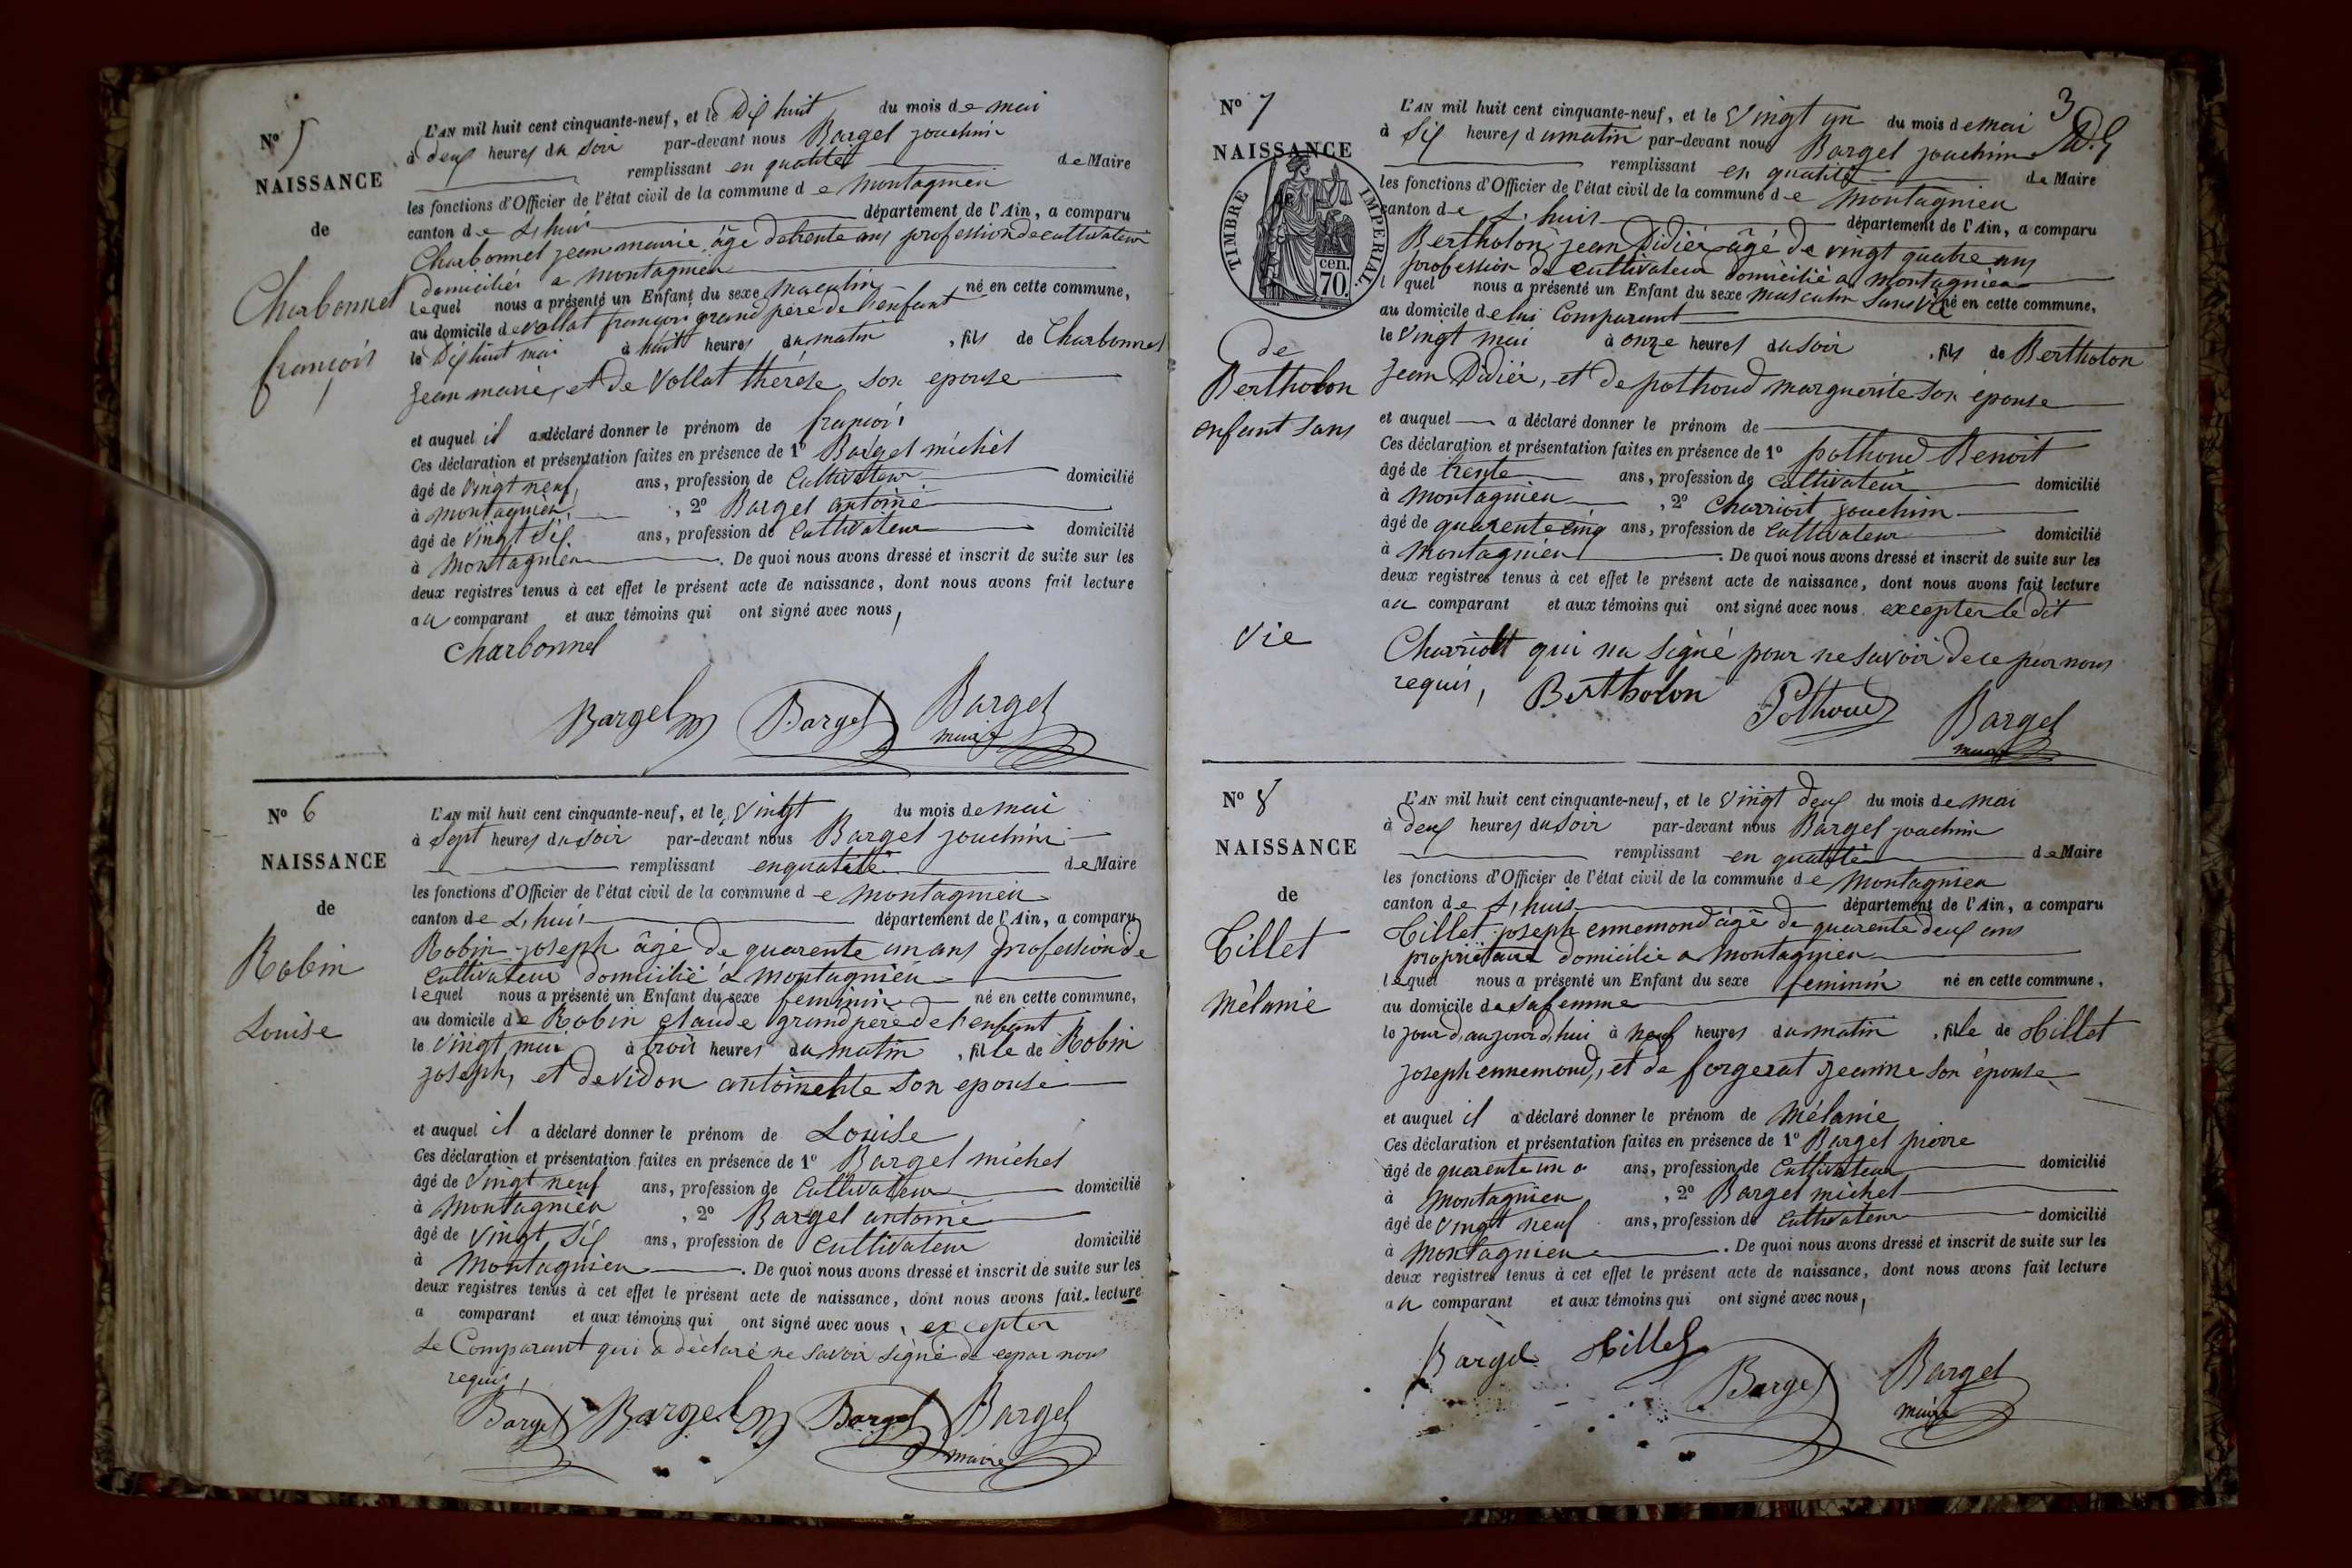 N° 5
NAISSANCE
de
Charbonnel
françois
L'AN mil huit cent cinquante-neuf, et le Dix huit du mois de mai
à deux heures du soir par-devant nous Bargel joachim
remplissant en qualité de Maire
les fonctions d'Officier de l'état civil de la commune de montagnieu
canton de L, huis département de l'Ain, a comparu
Charbonnel jean marie âge de trente ans profession de cultivateur
domiciliés a montagnieu
lequel nous a présenté un Enfant du sexe masculin né en cette commune,
au domicile de vollat françois grand père de l'enfant
le Dix huit mai à huit heures du matin , fils de Charbonnel
Jean marie, et de Vollat thérèse son epouse
et auquel il a déclaré donner le prénom de françois
Ces déclaration et présentation faites en présence de 1° Bargel michel
âgé de vingt neuf ans, profession de Cultivateur domicilié
à montagnieu , 2° Bargel antoine
âgé de vingt six ans, profession de Cultivateur domicilié
à montagnieu . De quoi nous avons dressé et inscrit de suite sur les
deux registres tenus à cet effet le présent acte de naissance, dont nous avons fait lecture
au comparant et aux témoins qui ont signé avec nous,
Charbonnel
Bargel m Bargel Bargel
maire
N° 6
NAISSANCE
de
Robin
Louise
L'AN mil huit cent cinquante-neuf, et le vingt du mois de mai
à sept heures du soir par-devant nous Bargel joachim
remplissant en qualité de Maire
les fonctions d'Officier de l'état civil de la commune de montagnieu
canton de L, huis département de l'Ain, a comparu
Robin joseph âgé de quarente un ans profession de
Cultivateur domicilié a montagnieu
lequel nous a présenté un Enfant du sexe feminin né en cette commune,
au domicile de Robin claude grand père de l'enfant
le vingt mai à trois heures du matin , fille de Robin
joseph, et de vidon antoinette son epouse
et auquel il a déclaré donner le prénom de Louise
Ces déclaration et présentation faites en présence de 1° Bargel michel
âgé de vingt neuf ans, profession de Cultivateur domicilié
à montagnieu , 2° Bargel antoine
âgé de vingt six ans, profession de Cultivateur domicilié
à montagnieu . De quoi nous avons dressé et inscrit de suite sur les
deux registres tenus à cet effet le présent acte de naissance, dont nous avons fait lecture
a comparant et aux témoins qui ont signé avec nous, excepter
Le Comparant qui a déclaré ne savoir signé de ce par nous
requis,
Bargel Bargel m Bargel Bargel
maire
3
N° 7
NAISSANCE
de
TIMBRE IMPERIAL.
cen.
70.
de
Bertholon
enfant sans
vie
L'AN mil huit cent cinquante-neuf, et le vingt un du mois de mai
à six heures du matin par-devant nous Bargel joachim
remplissant en qualité de Maire
les fonctions d'Officier de l'état civil de la commune de montagnieu
canton de L, huis département de l'Ain, a comparu
Bertholon jean Didier âgé de vingt quatre ans
profession de cultivateur domicilié a montagnieu
l quel nous a présenté un Enfant du sexe masculin sans vie né en cette commune,
au domicile de lui Comparant
le vingt mai à onze heures du soir , fils de Bertholon
Jean Didier, et de pothoud marguerite son épouse
et auquel a déclaré donner le prénom de
Ces déclaration et présentation faites en présence de 1° pothoud Benoit
âgé de trente ans, profession de Cultivateur domicilié
à montagnieu , 2° Charrioit joachim
âgé de quarente cinq ans, profession de Cultivateur domicilié
à montagnieu . De quoi nous avons dressé et inscrit de suite sur les
deux registres tenus à cet effet le présent acte de naissance, dont nous avons fait lecture
au comparant et aux témoins qui ont signé avec nous excepter le dit
Charriolt qui na signé pour ne savoir de ce par nous
requis, Bertholon Pothoud Bargel
maire
N° 8
NAISSANCE
de
Tillet
mélanie
L'AN mil huit cent cinquante-neuf, et le vingt deux du mois de mai
à deux heures du soir par-devant nous Bargel joachim
remplissant en qualité de Maire
les fonctions d'Officier de l'état civil de la commune de montagnieu
canton de L, huis département de l'Ain, a comparu
Tillet joseph ennemond âgé de quarente deux ans
propriétaire domicilié a montagnieu
lequel nous a présenté un Enfant du sexe feminin né en cette commune,
au domicile de sa femme
le jour d,aujourd,hui à neuf heures du matin , fille de Tillet
joseph ennemond, et de forgerat jeanne son épouse
et auquel il a déclaré donner le prénom de mélanie
Ces déclaration et présentation faites en présence de 1° Bargel pierre
âgé de quarente un ans, profession de Cultivateur domicilié
à montagnieu , 2° Bargel michel
âgé de vingt neuf ans, profession de Cultivateur domicilié
à montagnieu . De quoi nous avons dressé et inscrit de suite sur les
deux registres tenus à cet effet le présent acte de naissance, dont nous avons fait lecture
au comparant et aux témoins qui ont signé avec nous,
Bargel Tillet Bargel Bargel
maire